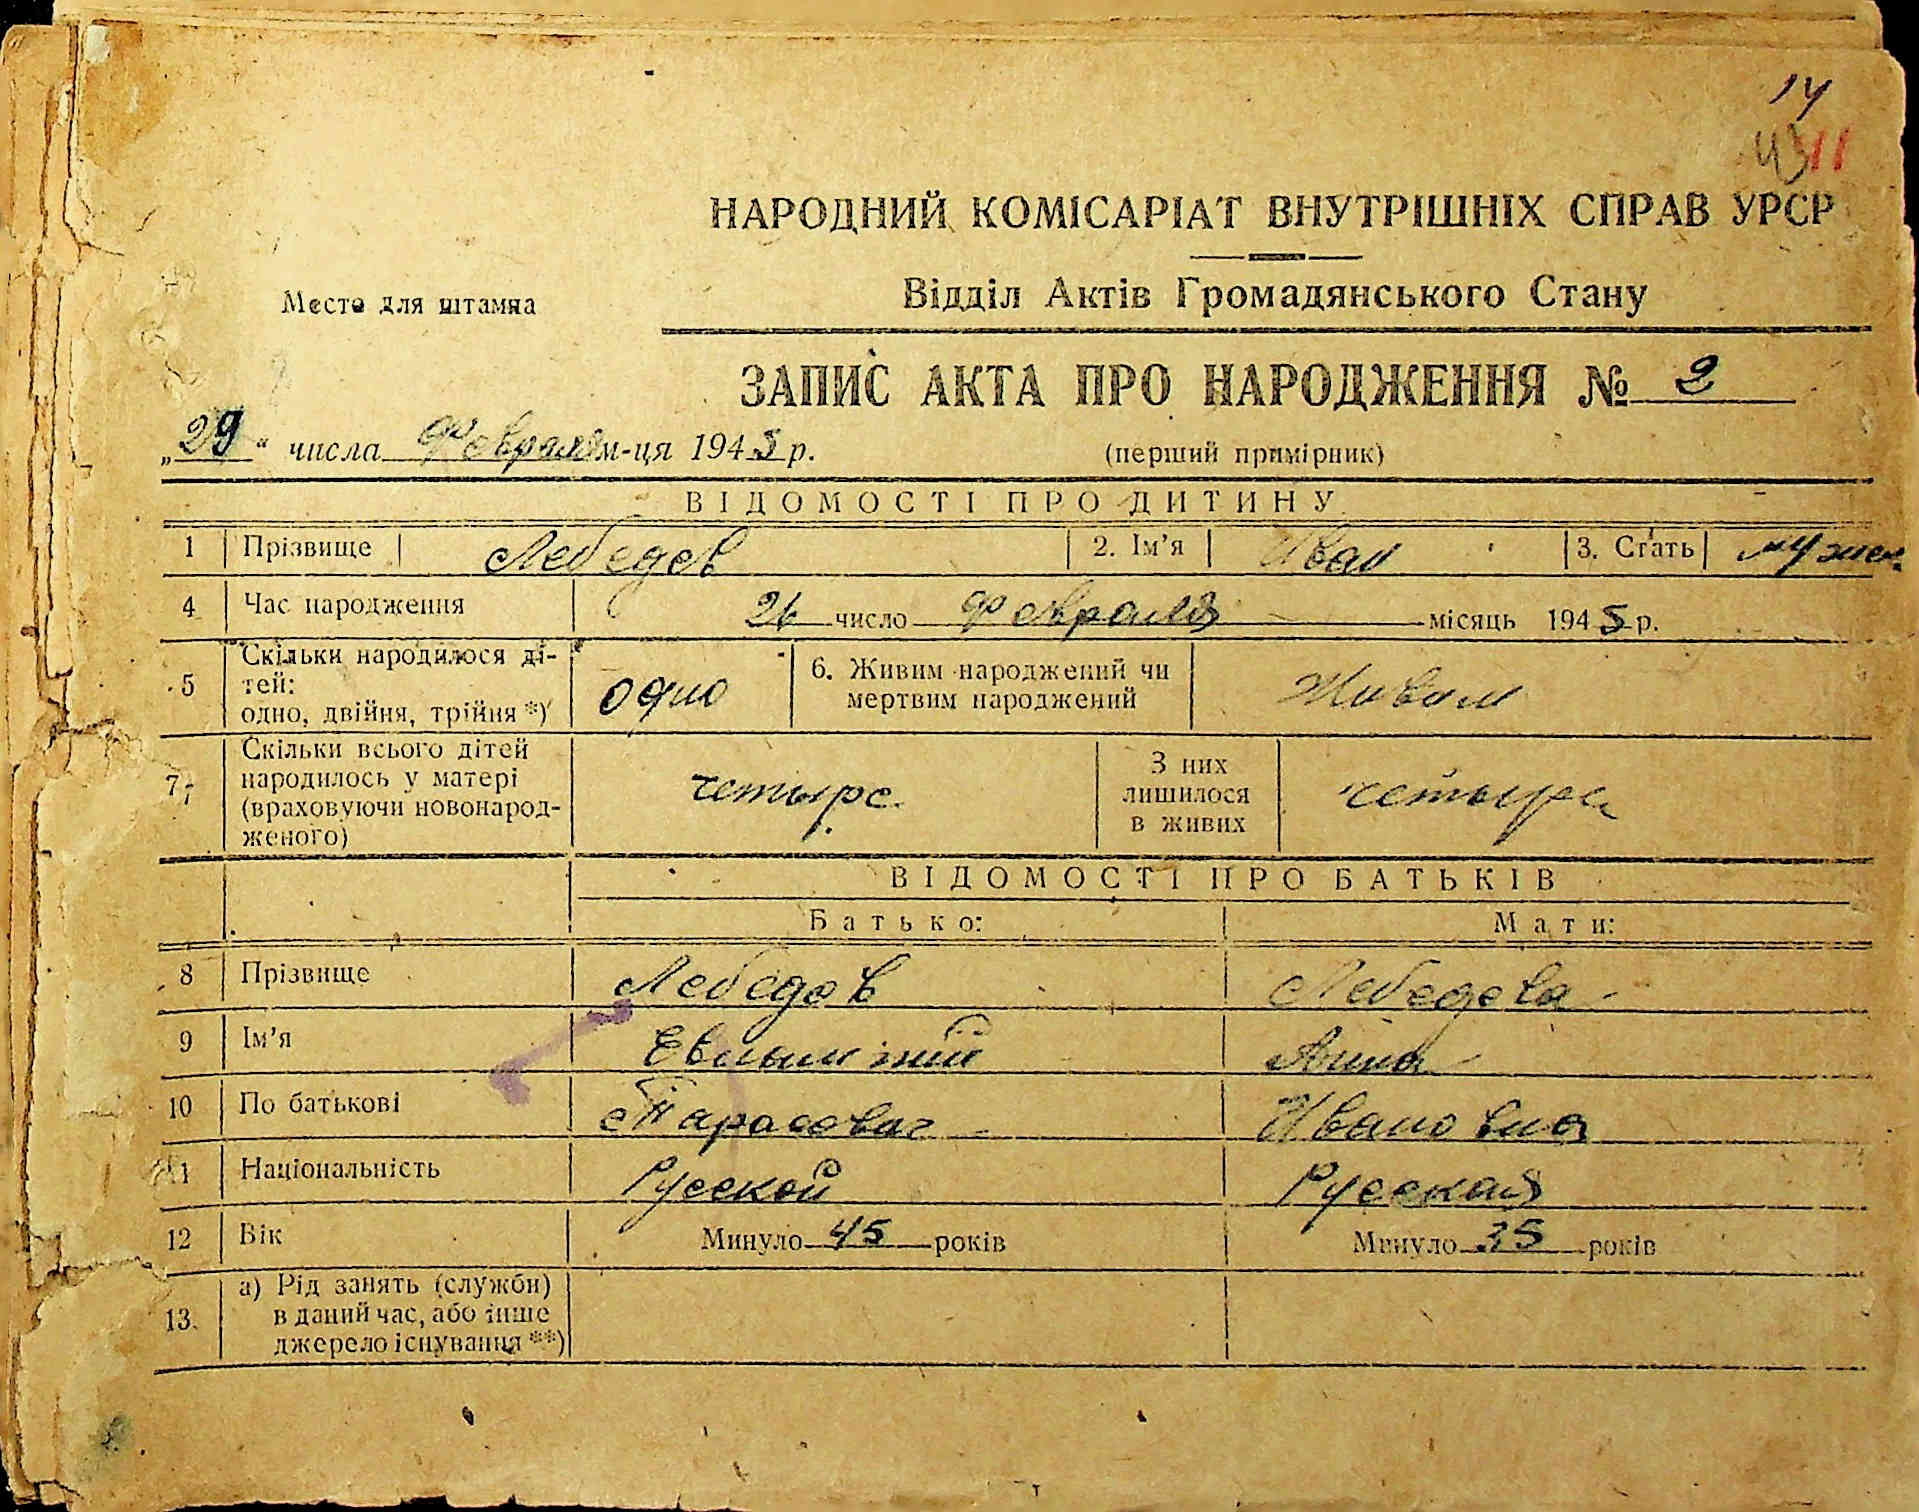 14
43 11
НАРОДНИЙ КОМІСАРІАТ ВНУТРІШНІХ СПРАВ УРСР
Место для штампа
Відділ Актів Громадянського Стану
ЗАПИС АКТА ПРО НАРОДЖЕННЯ № 2
„29“ числа Февраля м-ця 1945 р.
(перший примірник)
ВІДОМОСТІ ПРО ДИТИНУ
1 Прізвище Лебедев 2. Ім’я Иван 3. Стать мужск.
4 Час народження 26 число Февраля місяць 1945 р.
5 Скільки народилося ді-
тей:
одно, двійня, трійня *) одно
6. Живим народжений чи
мертвим народжений Живым
7 Скільки всього дітей
народилось у матері
(враховуючи новонарод-
женого) четыре
З них
лишилося
в живих четыре
ВІДОМОСТІ ПРО БАТЬКІВ
Батько: Мати:
8 Прізвище Лебедев Лебедева
9 Ім’я Анна
10 По батькові Тарасович Ивановна
11 Національність Русской Русская
12 Вік Минуло 45 років Минуло 35 років
13. а) Рід занять (служби)
в даний час, або інше
джерело існування **)